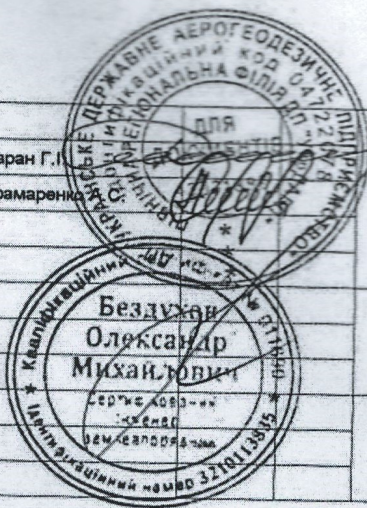 УКРАЇНСЬКЕ ДЕРЖАВНЕ АЕРОГЕОДЕЗИЧНЕ ПІДПРИЄМСТВО
Ідентифікаційний код
РЕГІОНАЛЬНА ФІЛІЯ ДП
ДЛЯ
ДОКУМЕНТІВ
аран Г.І.
рамаренко
Кваліфікаційний
Бездухов
Олександр
Михайлович
Сертифікований
інженер
землевпорядник
Ідентифікаційний номер 3210113935